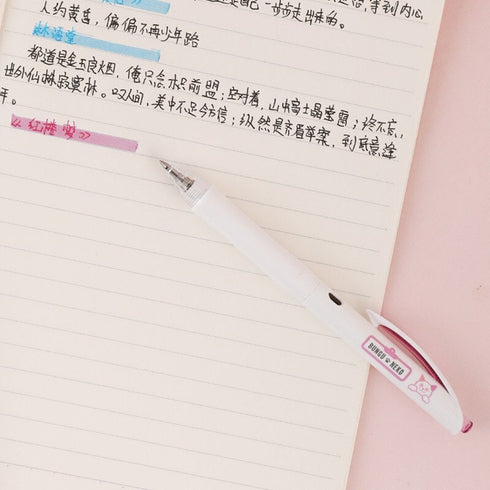 自己一步步走出来的。等到内心
人约黄昏，偏偏不再少年路
林语堂
都道是金玉良姻，俺只念木石前盟；空对着，山中高士晶莹雪；终不忘，
世外仙姝寂寞林。叹人间，美中不足今方信；纵然是齐眉举案，到底意难
平。
《红楼梦》
BUNGU NEKO